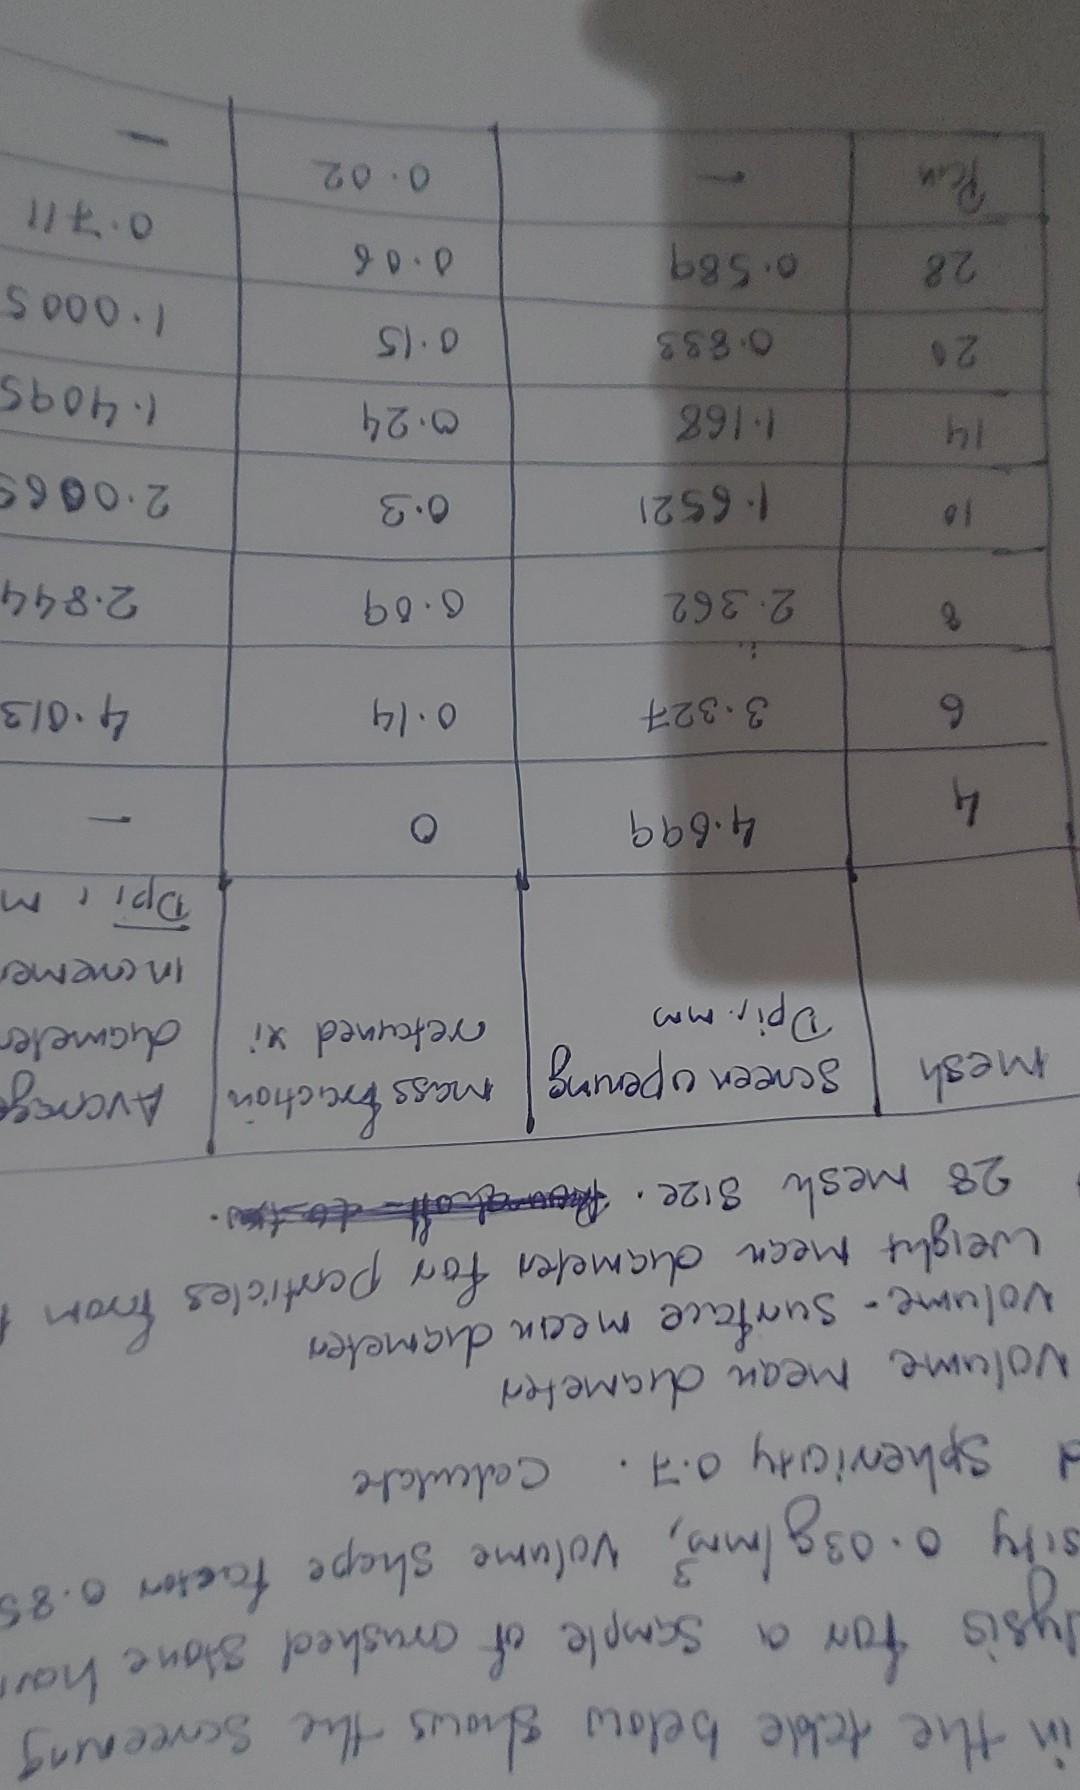 in the table below shows the screening
lysis for a sample of crushed stone hav
sity 0.03g/mm³, volume shape factor 0.85
d sphericity 0.7. Calculate
volume mean diameter
volume-surface mean diameter
weight mean diameter for particles from
28 mesh size.
mesh | screen opening Dpi, mm | mass fraction retained xi | Average diameter increme Dpi, m
4 | 4.699 | 0 | -
6 | 3.327 | 0.14 | 4.013
8 | 2.362 | 0.09 | 2.844
10 | 1.6521 | 0.3 | 2.0065
14 | 1.168 | 0.24 | 1.4095
20 | 0.833 | 0.15 | 1.0005
28 | 0.589 | 0.06 | 0.711
Pan | - | 0.02 | -